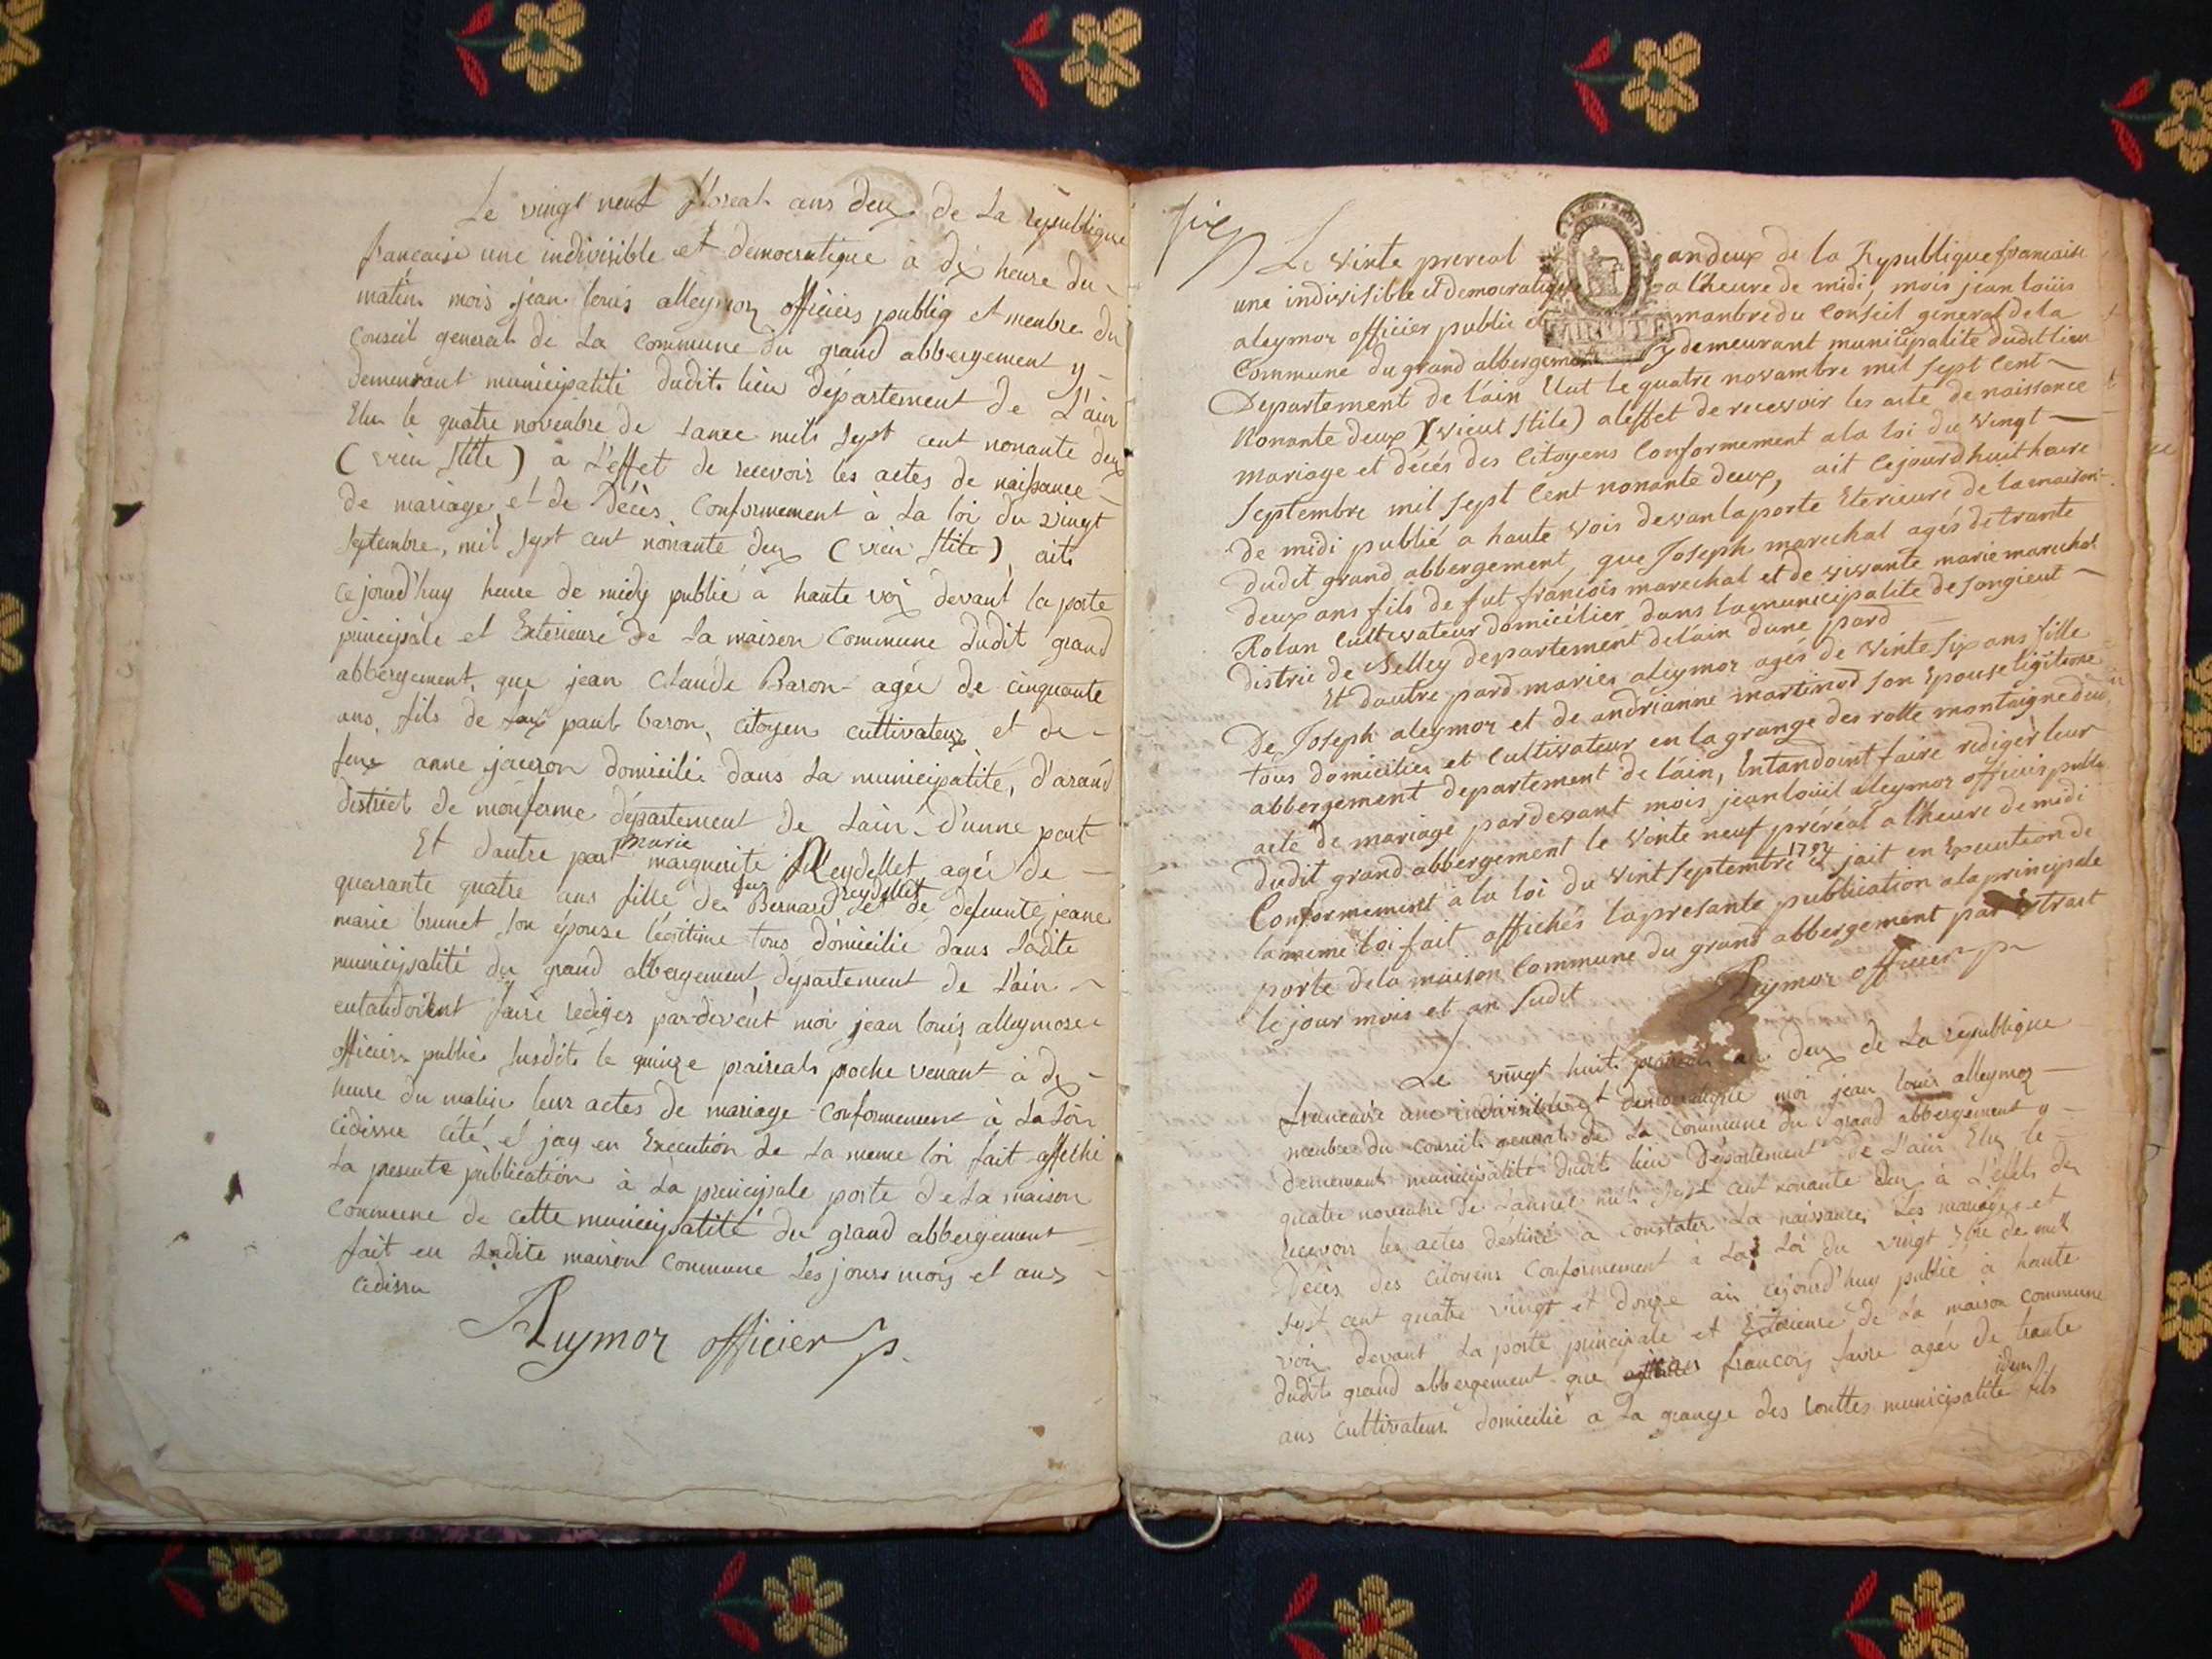 Le vingt neuf floreal ans deux de La republique
francaise une indivisible et democratique a dix heure du
matin mois jean louis alleymoz officiers publiq et menbre du
Conseil general de La Commune du grand abbergement y
demeurant municipalité dudit lieu Département de L'ain
Elu le quatre novenbre de Lanee mils sept cent nonante deux
(vieu stile) a L'effet de recevoir les actes de naissance
de mariage et de Décès Conformement à La loi du vingt
septembre, mil sept cent nonante deux (vieu stile) ait
cejourd'huy heure de midy publié a haute voix devant la porte
principale et Exterieure de La maison Commune dudit grand
abbergement, que jean Claude Baron agée de cinquante
ans, fils de paul baron, citoyen cultivateur et de
feue anne jauron domicilié dans La municipalité, d'arand
district de monferme département de Lain d'unne part
Et dautre part marguerite Reydellet agée de
marie
quarante quatre ans fille de Bernard et de defunte jeane
feu Reydellet
marie brunet son épouse légitime tous domicilié dans Ladite
municipalité du grand abbergement, département de L'ain
entandoient faire rediger par-devent moi jean louis alleymoz
officier public susdit le quinze praireal proche venant à dix
heure du matin leur actes de mariage Conformement à La Loi
cidissu cité, et jay en Execution de La meme loi fait affiché
La presente publication à La principale porte de La maison
Commune de cette municipalité du grand abbergement
fait en Ladite maison Commune Les jours mois et ans
cidissu
Aleymoz officier p.
Le vinte prereal an deux de la Republique francaise
une indivisible et democratique a lheure de midi, mois jean louis
aleymoz officier public et manbre du Conseil general de la
Commune du grand abbergement y demeurant municipalite dudit lieu
Departement de l'ain Elut le quatre novambre mil sept Cent
Nonante deux (vieux stile) a leffet de recevoir les acte de naissance
mariage et décés des Citoyens Conformement a la loi du vingt
Septembre mil sept Cent nonante deux, ait Cejourdhuit heure
De midi publié a haute vois devan la porte Eterieure de la maison
dudit grand abbergement, que Joseph marechal agés de trante
deux ans fils de fut francois marechal et de vivante marie marechal
Rolan Cultivateur domicélier dans la municipalite de songieut
distric de Belley departement delain dune pard
Et dautre pard marie aleymoz agés de vinte six ans fille
De Joseph aleymoz et de andrianne martinod son Epouse ligitime
tous domicilies et Cultivateur en la grange des rotte montaigne dud
abbergement departement de l'ain, Entandoint faire rediger leur
acte de mariage pardevant mois jean louis aleymoz officis public
dudit grand abbergement le vinte neuf préréal a lheure de midi
Conformement à la loi du vint septembre 1792 et jait en Execution de
la meme loi fait affichés la presante publication a la principale
porte de la maison Commune du grand abbergement par Extrait
le jour mois et an sudit
Aleymoz officier p
Le vingt huit praireal an deux de La republique
francaise une indivisible et democratique moi jean louis alleymoz
menbre du Conseil general de La Commune du grand abbergement y
demeurant municipalité dudit lieu Département de L'ain Elu le
quatre novenbre de Lannee mil sept cent nonante deux à L'effet de
recevoir les actes destiné a constater La naissance Les mariages et
Décès des citoyens Conformement à La Loi du vingt 7bre de mil
sept cent quatre vingt et douze ai cejourd'huy publié à haute
voix devant La porte principale et Exterieure de La maison Commune
dudit grand abbergement que francois favre agée de trante
ans Cultivateur domicilié a La grange des routtes municipalité idem fils